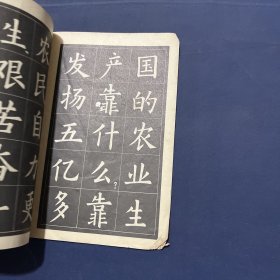 国的农业生
产靠什么?靠
发扬五亿多
农民自力更
生艰苦奋